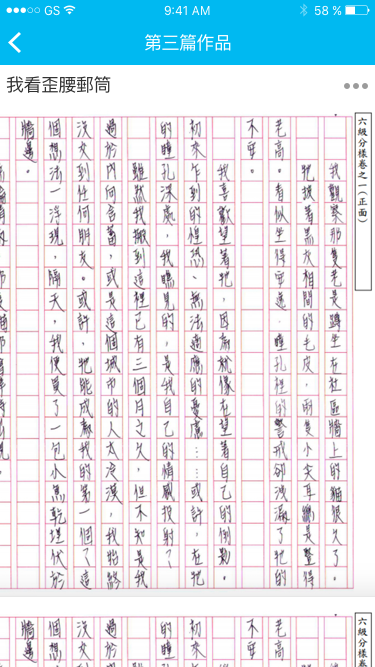 GS
9:41 AM
58 %
第三篇作品
我看歪腰郵筒
六級分樣卷之一(正面)
我觀察那隻老是蹲坐在社區牆上的貓很久了。
牠披著黑灰相間的毛皮,兩隻小尖耳總是豎得
老高。看似坐得安適,瞳孔裡的警戒卻洩漏了牠的
不安。
我喜歡望著牠,因為就像在望著自己的倒影。
初來乍到的惶恐、無法適應的憂慮……或許,在牠
的瞳孔深處,我瞧見的,是我自己的情緒投射?
雖然我搬到這裡已有三個月之久,但不知是我
過於內向害羞,或是這個城市的人太冷漠,我始終
沒交到任何朋友。或許,牠能成為我的第一個?這
個想法一浮現,隔天,我便買了一包小魚乾埋伏於
牆邊。
六級分樣卷
老高
不安
初來
的瞳
過於
沒交
個想
牆邊